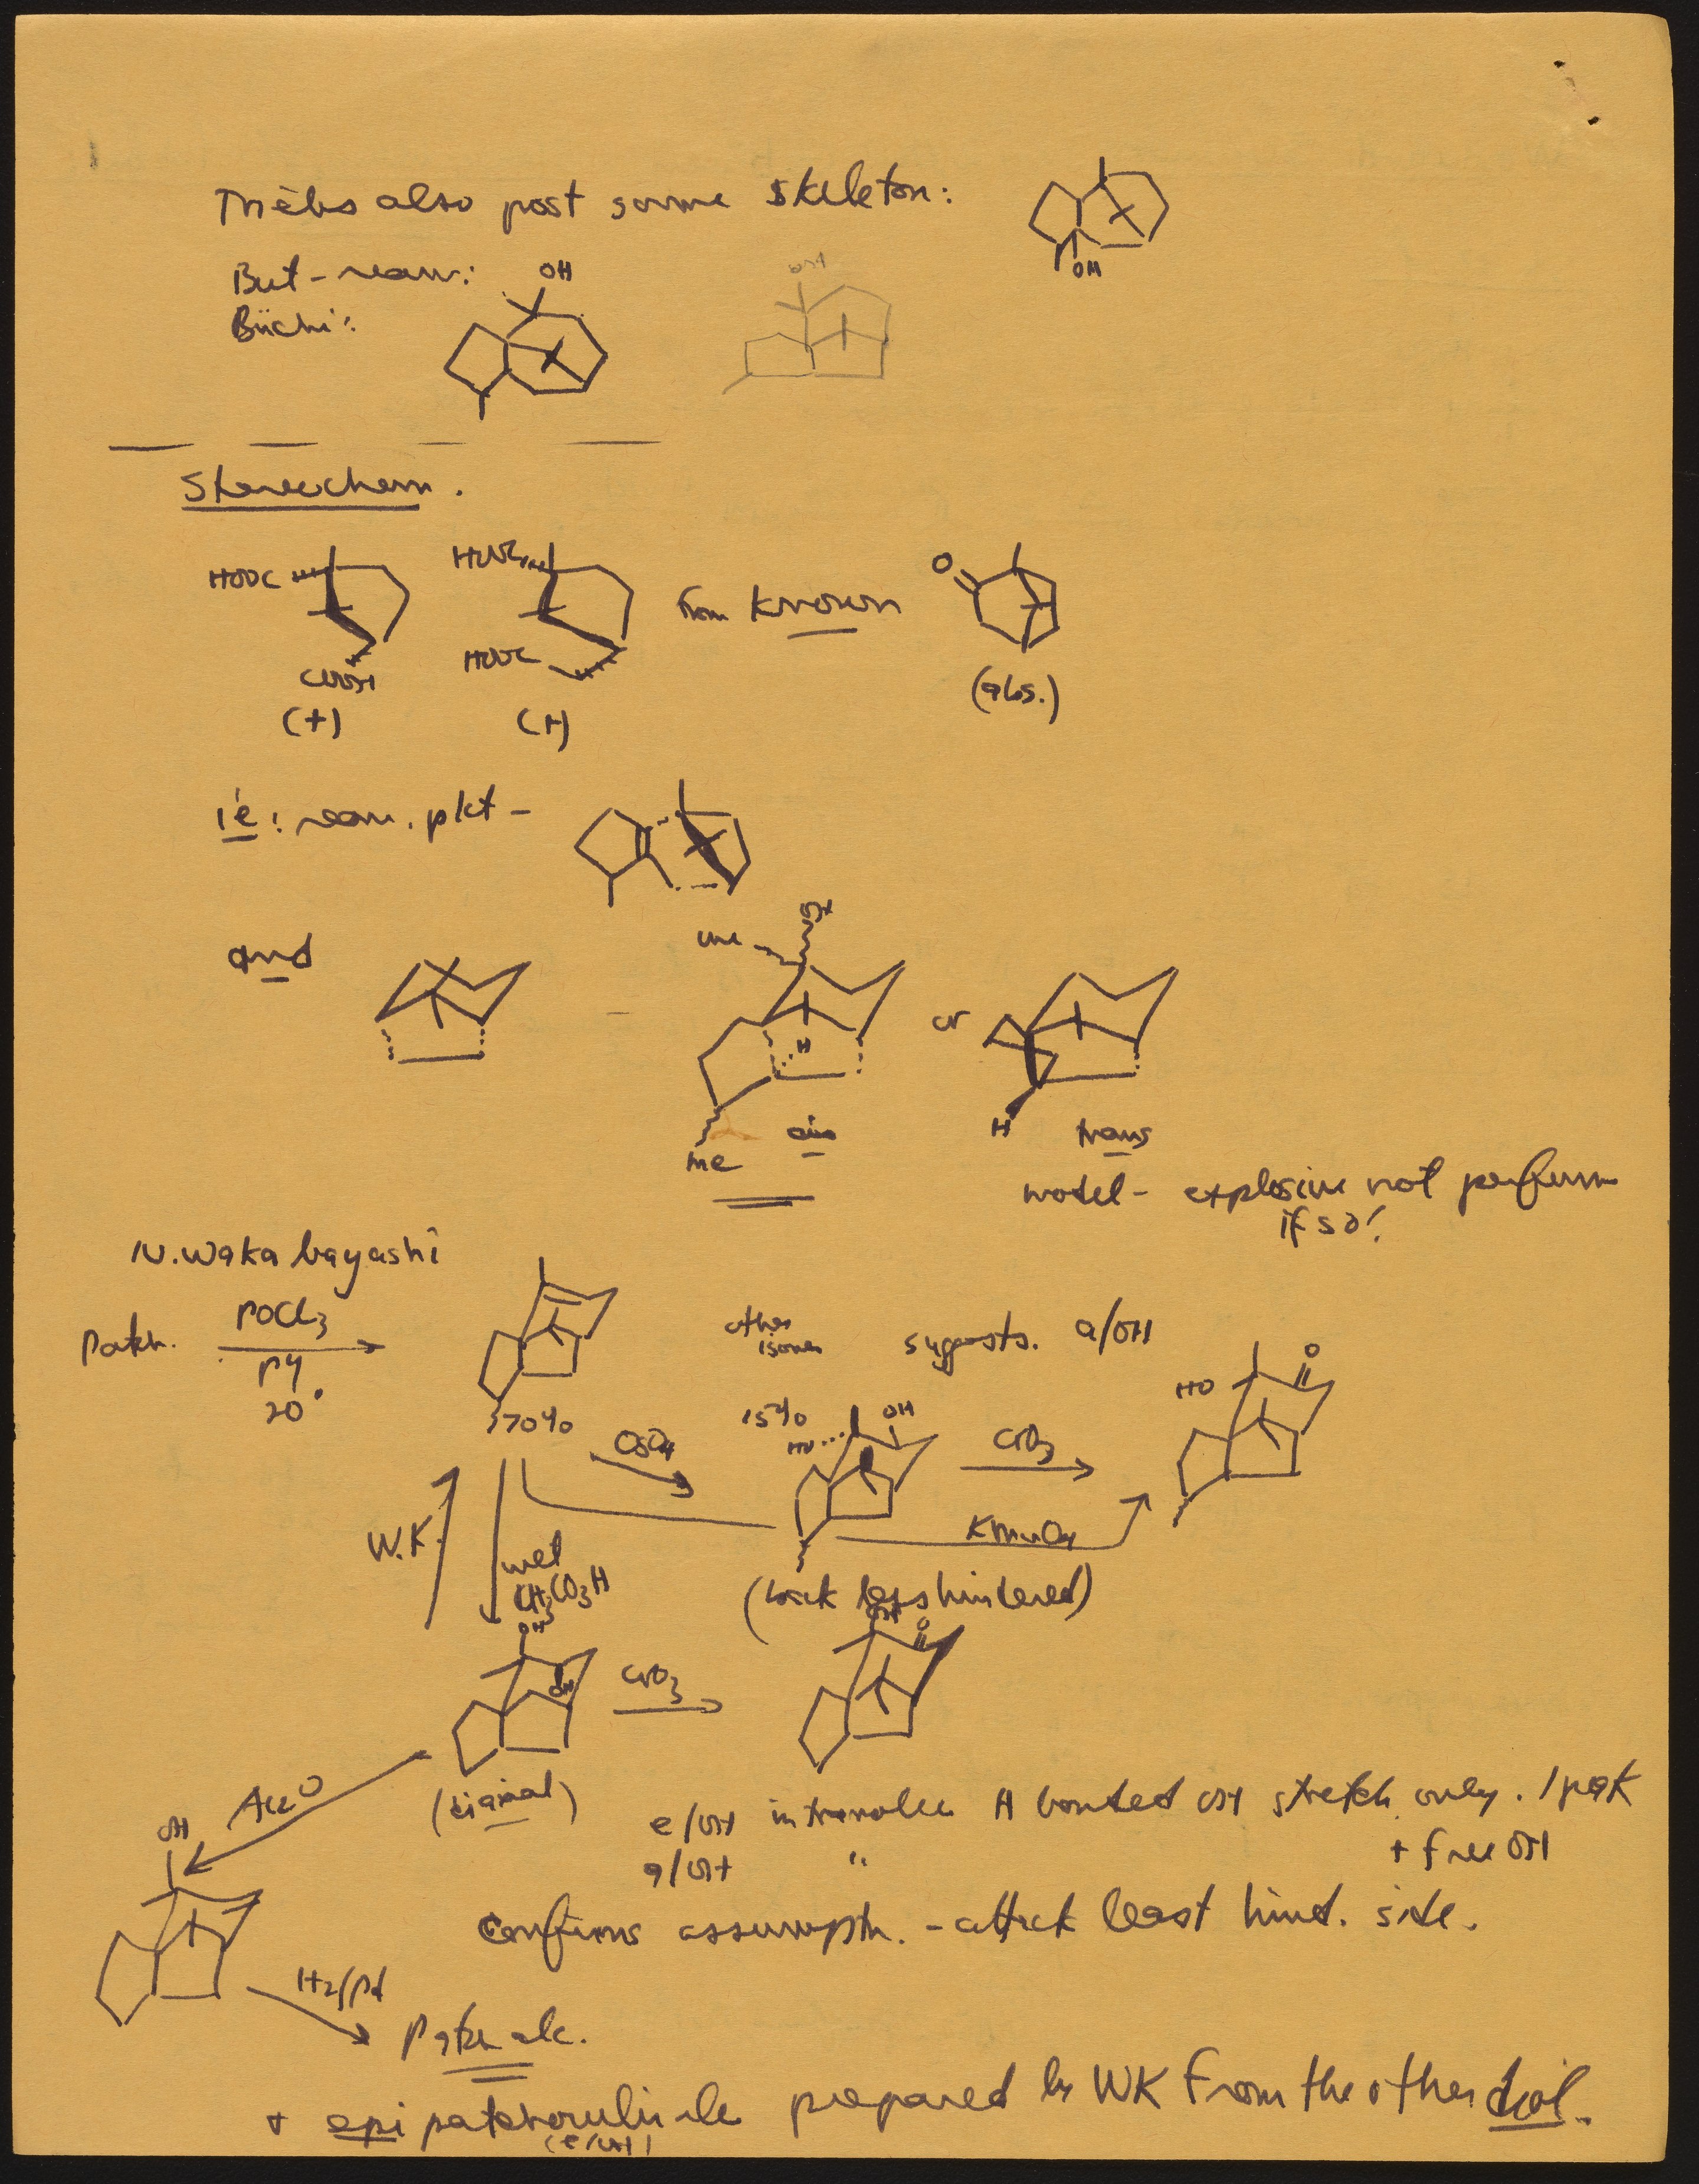 Triebs also post same skeleton:
OH
But-rearr:
OH
Büchi:
Stereochem.
HOOC
HOOC
from known
O
COOH
HOOC
(+)
(+)
(abs.)
ie: rearr. pkt -
and
Me
OH
or
H
H
cis
trans
Me
model - explosive not perfume
if so!
N. Wakabayashi
Patch.
POCl3
py
20°
other
isomer
suggests. a/OH
HO
O
70%
15%
HO
OH
OsO4
CrO3
W.K.
wet
CH3CO3H
KMnO4
(back less hindered)
OH
OH
O
OH
CrO3
Ac2O
(diaxial)
OH
e/OH intramolec H bonded OH stretch only. 1 peak
a/OH " + free OH
Confirms assumptn. - attack least hind. side.
H2/Pd
Patch alc.
+ epi patchouli alc prepared by WK from the other diol.
(e/OH)